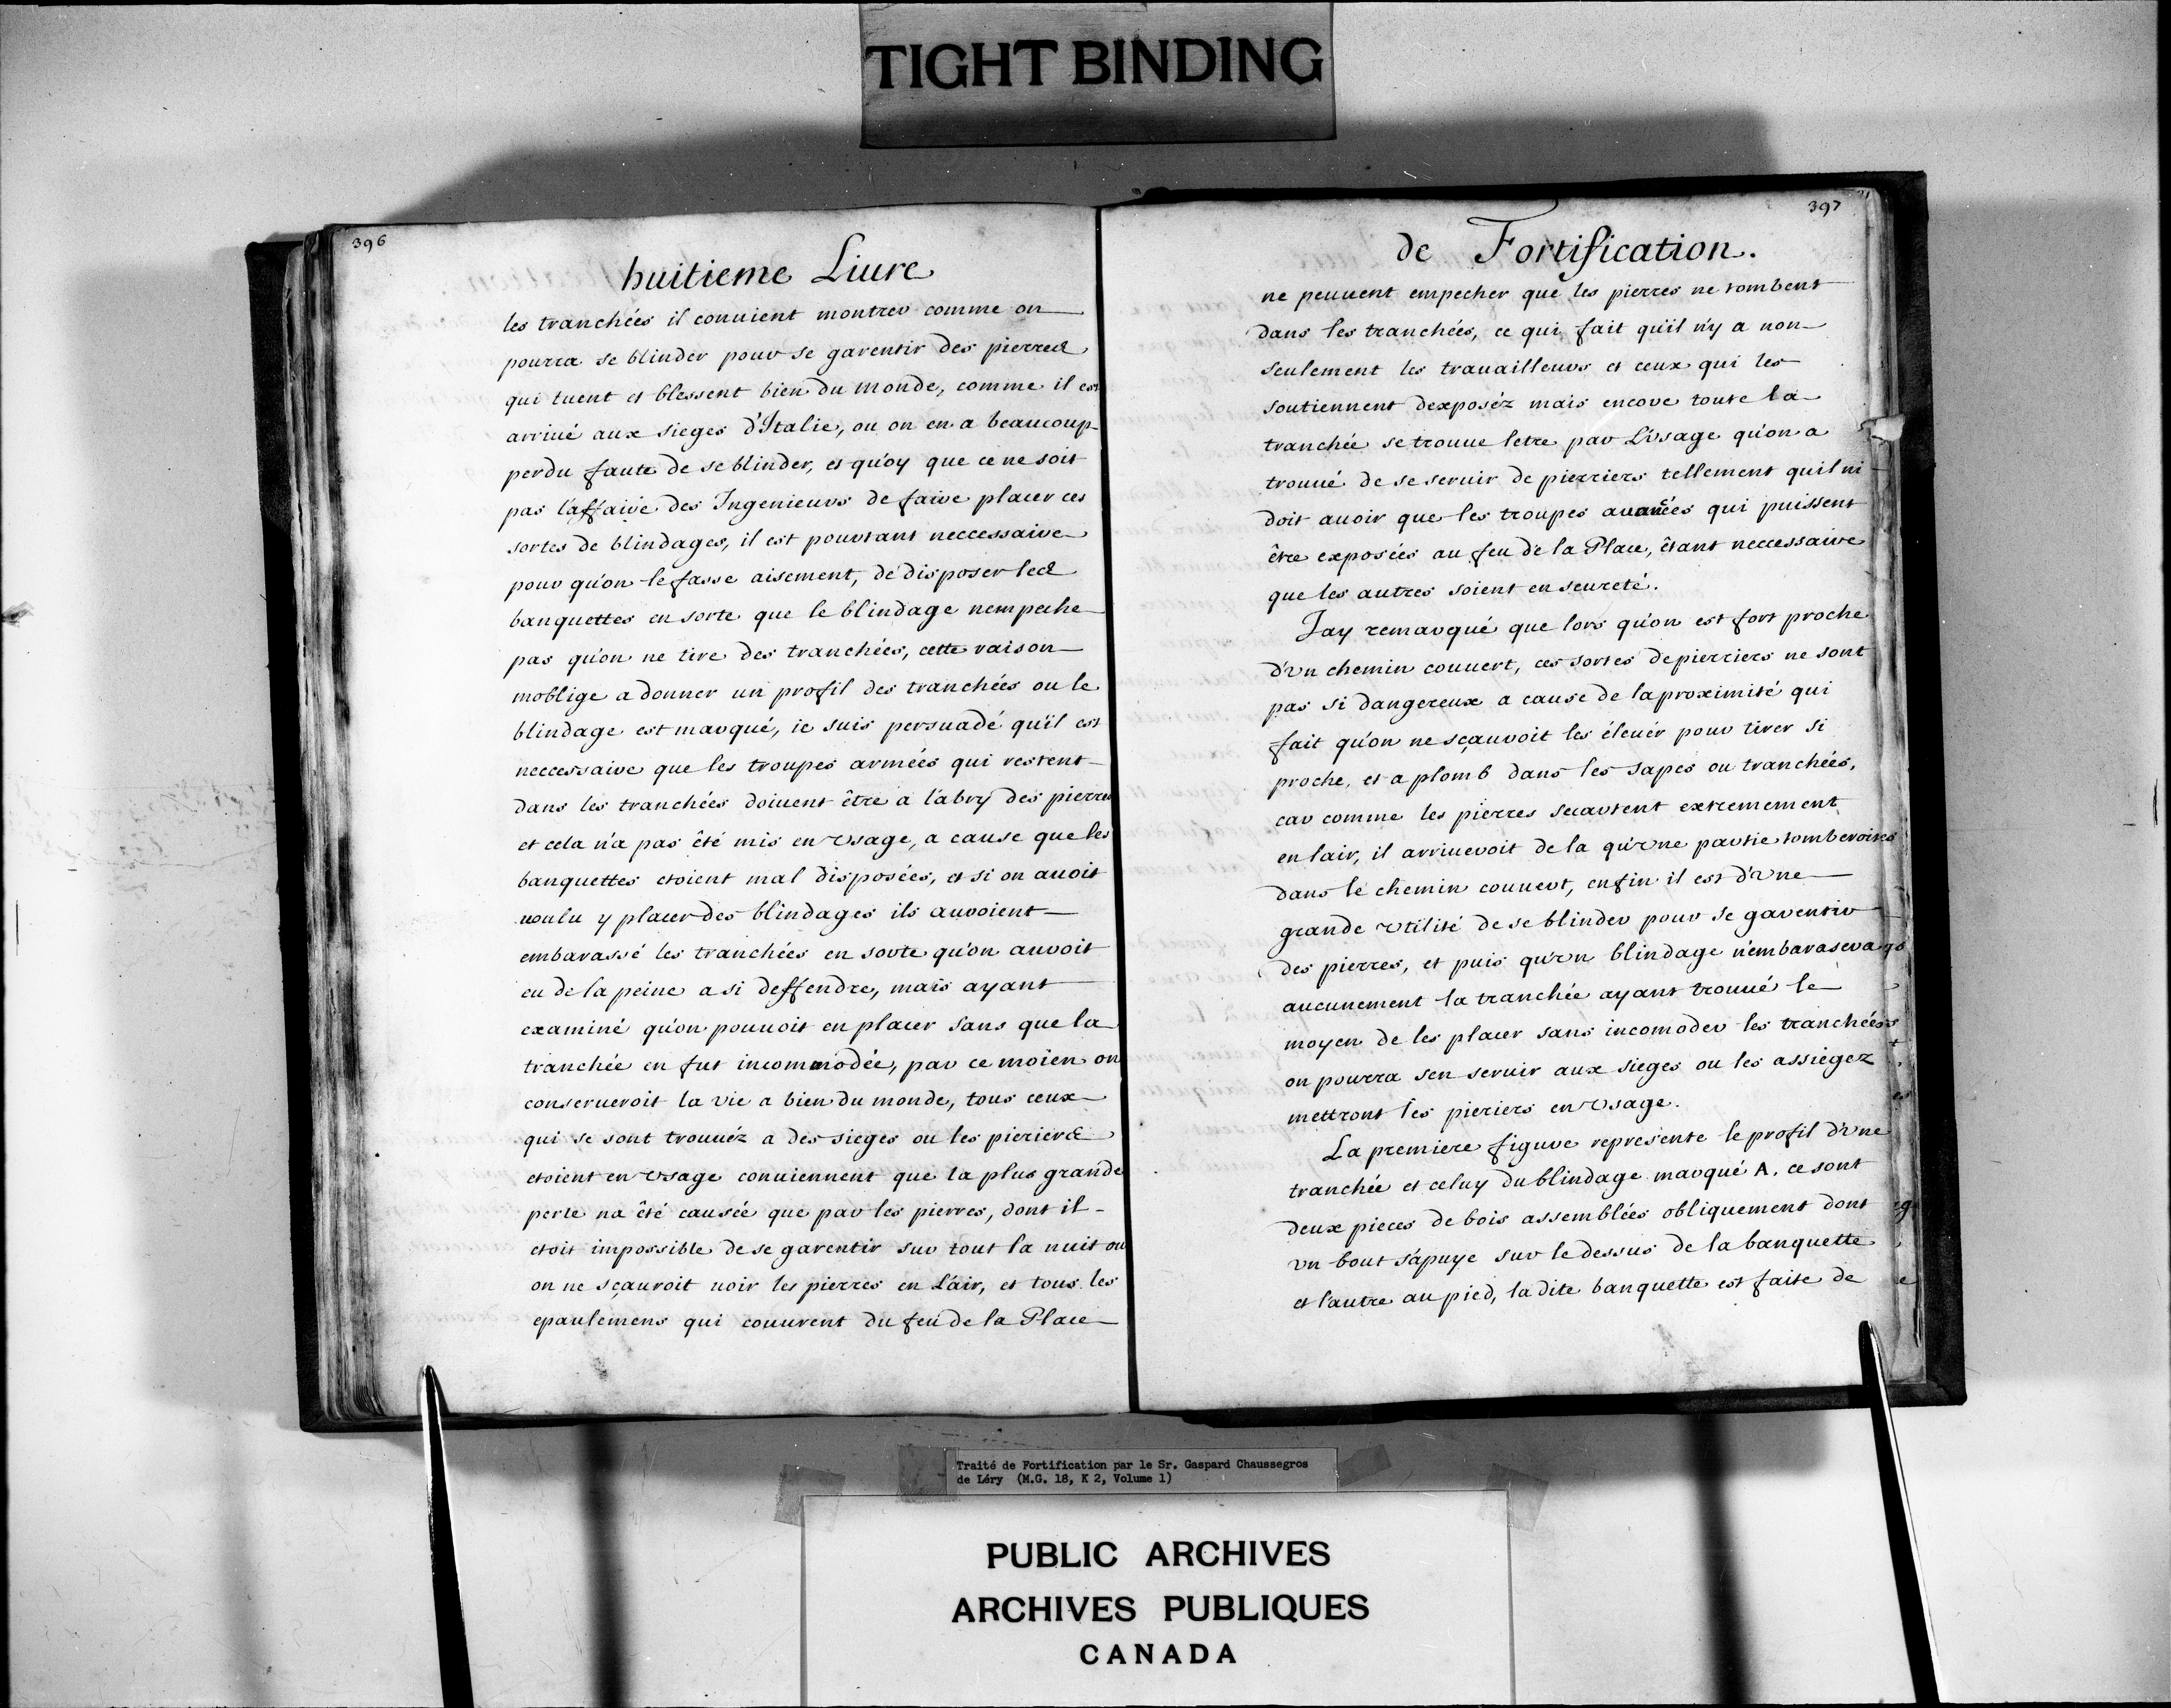 TIGHT BINDING
396
huitieme Liure
les tranchées il conuient montrer comme on
pourra se blinder pour se garentir des pierres
qui tuent et blessent bien du monde, comme il est
arriué aux sieges d'Italie, ou on en a beaucoup
perdu faute de se blinder, et quoy que ce ne soit
pas l'affaire des Ingenieurs de faire placer ces
sortes de blindages, il est pourtant neccessaire
pour qu'on le fasse aisement, de disposer les
banquettes en sorte que le blindage nempeche
pas qu'on ne tire des tranchées, cette raison
moblige a donner un profil des tranchées ou le
blindage est marqué, ie suis persuadé qu'il est
neccessaire que les troupes armées qui restent
dans les tranchées doiuent être a l'abry des pierres
et cela n'a pas été mis en vsage, a cause que les
banquettes etoient mal disposées, et si on auoit
uoulu y placer des blindages ils auroient
embarassé les tranchées en sorte qu'on auroit
eu de la peine a si deffendre, mais ayant
examiné qu'on pouuoit en placer sans que la
tranchée en fut incommodée, par ce moïen on
conserueroit la vie a bien du monde, tous ceux
qui se sont trouuéz a des sieges ou les pieriers
etoient en vsage conuiennent que la plus grande
perte na été causée que par les pierres, dont il
etoit impossible de se garentir sur tout la nuit ou
on ne sçauroit uoir les pierres en L'air, et tous les
epaulemens qui couurent du feu de la Place
397
de Fortification.
ne peuuent empecher que les pierres ne tombent
dans les tranchées, ce qui fait qu'il n'y a non
seulement les trauailleurs et ceux qui les
soutiennent dexposéz mais encore toute la
tranchée se trouue letre par L'vsage qu'on a
trouué de se seruir de pierriers tellement quil ni
doit auoir que les troupes auancées qui puissent
être exposées au feu de la Place, êtant neccessaire
que les autres soient en seureté.
Jay remarqué que lors qu'on est fort proche
d'vn chemin couuert, ces sortes de pierriers ne sont
pas si dangereux a cause de la proximité qui
fait qu'on ne sçauroit les éleuér pour tirer si
proche, et a plomb dans les sapes ou tranchées,
car comme les pierres secartent extremement
en lair, il arriueroit de la qu'vne partie tomberoit
dans le chemin couuert, enfin il est d'vne
grande vtilité de se blinder pour se garentir
des pierres, et puis qu'vn blindage n'embarasera
aucunement la tranchée ayant trouué le
moyen de les placer sans incomoder les tranchées
on pourra sen seruir aux sieges ou les assiegez
mettront les pieriers en vsage.
La premiere figure represente le profil d'vne
tranchée et celuy du blindage marqué A. ce sont
deux pieces de bois assemblées obliquement dont
vn bout s'apuye sur le dessus de la banquette
et l'autre au pied, la dite banquette est faite de
Traité de Fortification par le Sr. Gaspard Chaussegros
de Léry (M.G. 18, K 2, Volume 1)
PUBLIC ARCHIVES
ARCHIVES PUBLIQUES
CANADA